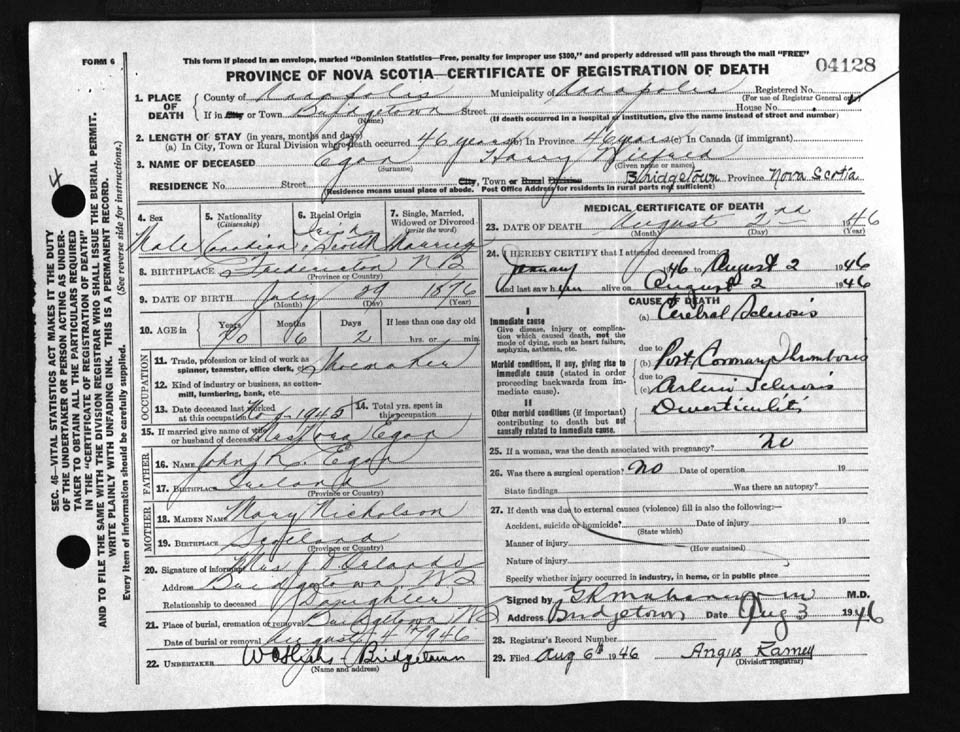 This form if placed in an envelope, marked "Dominion Statistics—Free, penalty for improper use $300," and properly addressed will pass through the mail "FREE"
FORM 6
PROVINCE OF NOVA SCOTIA—CERTIFICATE OF REGISTRATION OF DEATH
04128
SEC. 46—VITAL STATISTICS ACT MAKES IT THE DUTY
OF THE UNDERTAKER OR PERSON ACTING AS UNDER-
TAKER TO OBTAIN ALL THE PARTICULARS REQUIRED
IN THE "CERTIFICATE OF REGISTRATION OF DEATH"
AND TO FILE THE SAME WITH THE DIVISION REGISTRAR WHO SHALL ISSUE THE BURIAL PERMIT.
WRITE PLAINLY WITH UNFADING INK. THIS IS A PERMANENT RECORD.
Every item of information should be carefully supplied. (See reverse side for instructions.)
4
1. PLACE OF DEATH
County of Annapolis Municipality of Annapolis Registered No.
(For use of Registrar General only)
If in City or Town Bridgetown Street House No.
(Name) (If death occurred in a hospital or institution, give the name instead of street and number)
2. LENGTH OF STAY (in years, months and days)
(a) In City, Town or Rural Division where death occurred 46 years (b) In Province 46 years (c) In Canada (if immigrant)
3. NAME OF DECEASED Egan Harry Wilfred
(Surname) (Given name or names)
RESIDENCE No. Street City, Town or Rural Division Bridgetown Province Nova Scotia
(Residence means usual place of abode. Post Office Address for residents in rural parts not sufficient)
4. Sex Male
5. Nationality (Citizenship) Canadian
6. Racial Origin Irish & Scotch
7. Single, Married, Widowed or Divorced (write the word) Married
8. BIRTHPLACE Fredericton NB
(Province or Country)
9. DATE OF BIRTH July 29 1876
(Month) (Day) (Year)
10. AGE in Years Months Days If less than one day old
70 6 2 hrs. or min.
OCCUPATION
11. Trade, profession or kind of work as
spinner, teamster, office clerk, etc. Shoemaker
12. Kind of industry or business, as cotton-
mill, lumbering, bank, etc.
13. Date deceased last worked
at this occupation 1945
14. Total yrs. spent in
this occupation
15. If married give name of wife
or husband of deceased Egan
FATHER
16. NAME John R. Egan
17. BIRTHPLACE Ireland
(Province or Country)
MOTHER
18. MAIDEN NAME Mary Nicholson
19. BIRTHPLACE Scotland
(Province or Country)
20. Signature of informant Mrs J
Address Bridgetown NS
Relationship to deceased Daughter
21. Place of burial, cremation or removal Bridgetown NS
Date of burial or removal August 4th 1946
22. UNDERTAKER Bridgetown
(Name and address)
MEDICAL CERTIFICATE OF DEATH
23. DATE OF DEATH August 2nd 1946
(Month) (Day) (Year)
24. I HEREBY CERTIFY that I attended deceased from
January 1946 to August 2 1946
and last saw him alive on August 2 1946
CAUSE OF DEATH
I
Immediate cause
Give disease, injury or complica-
tion which caused death, not the
mode of dying, such as heart failure,
asphyxia, asthenia, etc.
(a) Cerebral Sclerosis
due to
Morbid conditions, if any, giving rise to
immediate cause (stated in order
proceeding backwards from im-
mediate cause).
(b) Post Coronary Thrombosis
due to
(c) Arterio Sclerosis
II
Other morbid conditions (if important)
contributing to death but not
causally related to immediate cause.
Diverticulitis
25. If a woman, was the death associated with pregnancy? No
26. Was there a surgical operation? No Date of operation 19
State findings Was there an autopsy?
27. If death was due to external causes (violence) fill in also the following:—
Accident, suicide or homicide? Date of injury 19
(State which)
Manner of injury
(How sustained)
Nature of injury
Specify whether injury occurred in industry, in home, or in public place
Signed by M.D.
Address Bridgetown Date Aug 3 1946
28. Registrar's Record Number
29. Filed Aug 6th 1946 Angus Ramey
(Division Registrar)